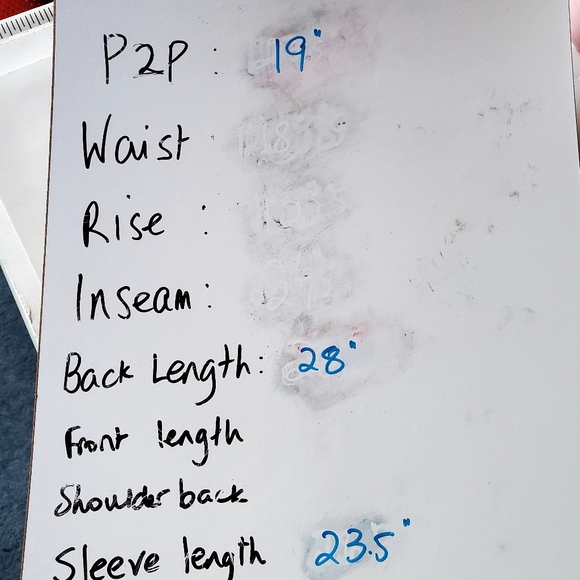 P2P : 19"
Waist
Rise :
Inseam :
Back Length : 28"
Front length
Shoulder back
Sleeve length 23.5"